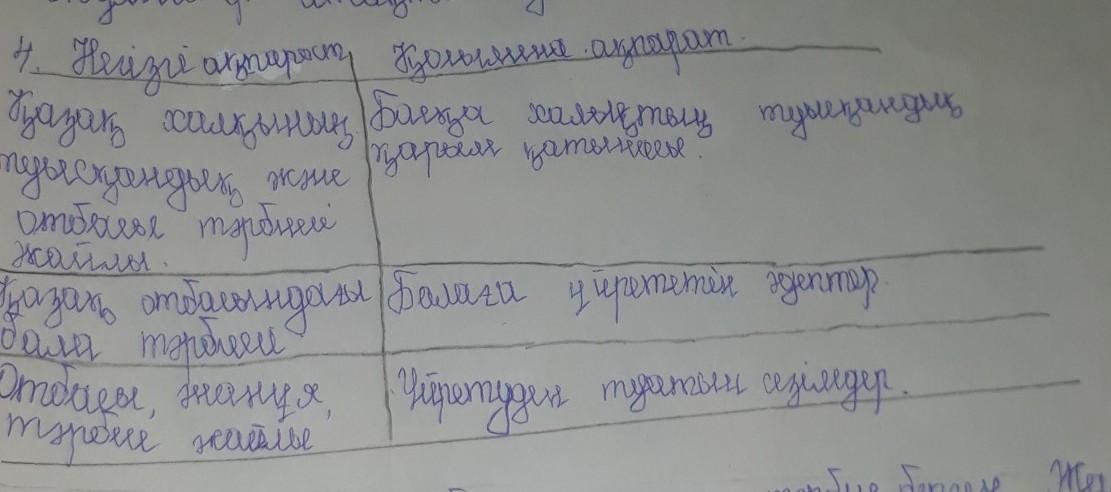 4. Негізгі ақпарат Қосымша ақпарат.
Қазақ халқының
туысқандық және
отбасы тәрбиесі
жайлы.
Басқа халықтың туысқандық
қарым қатынасы.
Қазақ отбасындағы
бала тәрбиесі
Балаға үйрететін әдептер.
Отбасы, жанұя,
тәрбие жайлы
Үйретуден туатын сезімдер.